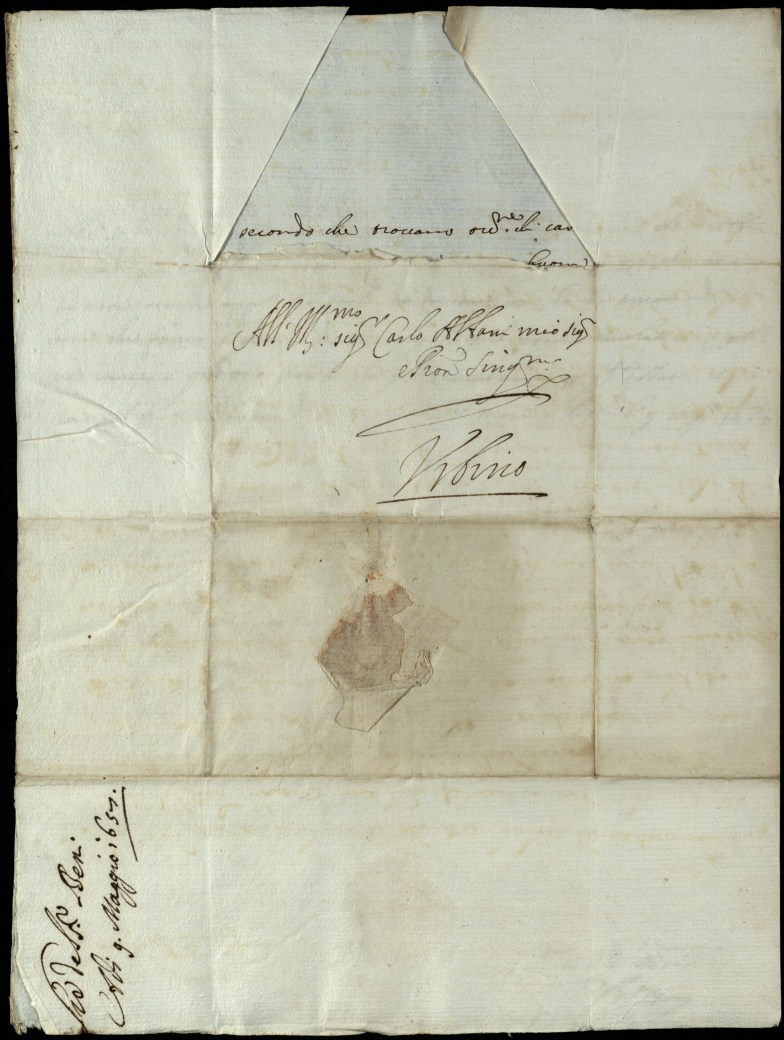 secondo che trovano ord.ne di cav
huomi
All' Ill:mo sigr Carlo Albani mio sigr
e Pron Singmo
Vrbino
Adi 9. Maggio 1657.